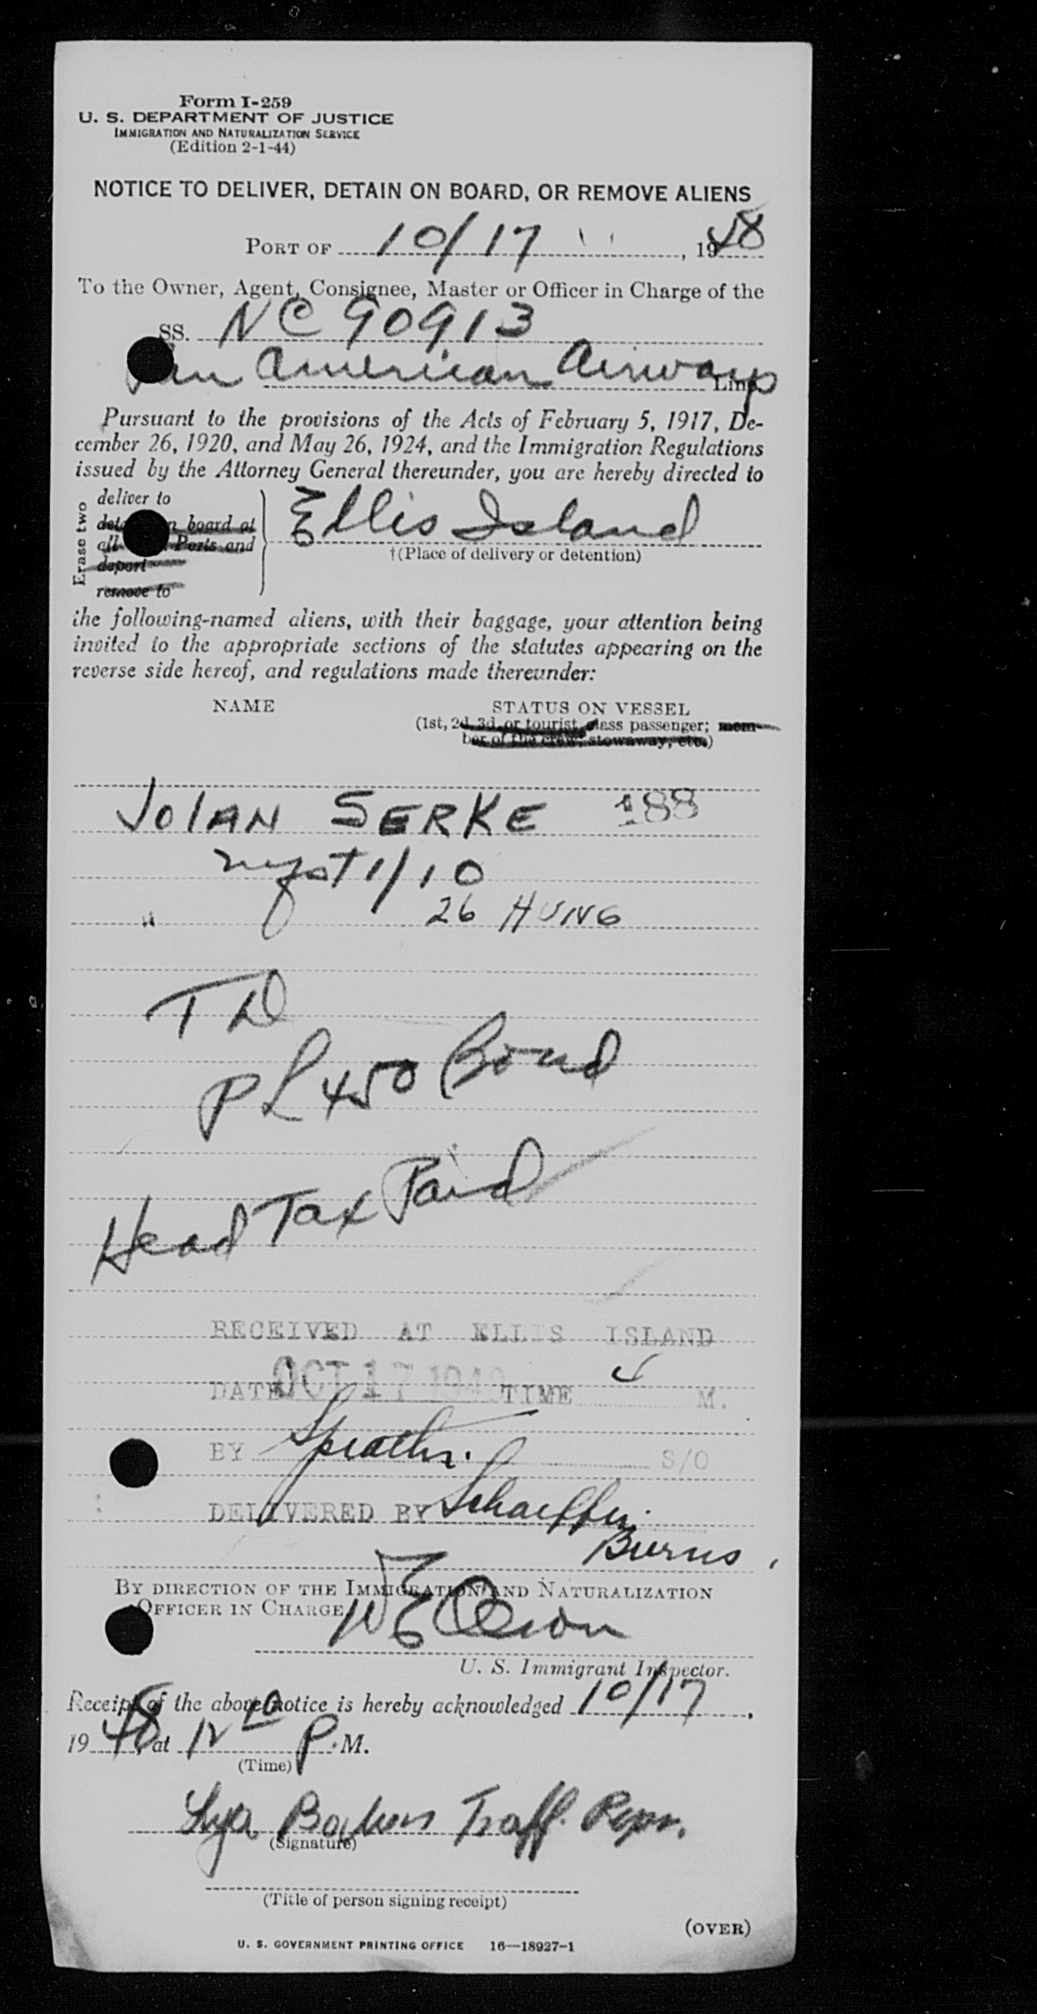 Form I-259
U. S. DEPARTMENT OF JUSTICE
IMMIGRATION AND NATURALIZATION SERVICE
(Edition 2-1-44)
NOTICE TO DELIVER, DETAIN ON BOARD, OR REMOVE ALIENS
PORT OF 10/17 , 1948
To the Owner, Agent, Consignee, Master or Officer in Charge of the
SS. NC 90913
Pan American Airways Line
Pursuant to the provisions of the Acts of February 5, 1917, De-
cember 26, 1920, and May 26, 1924, and the Immigration Regulations
issued by the Attorney General thereunder, you are hereby directed to
Erase two
deliver to
detain on board at
all Ports and
deport
remove to
Ellis Island
†(Place of delivery or detention)
the following-named aliens, with their baggage, your attention being
invited to the appropriate sections of the statutes appearing on the
reverse side hereof, and regulations made thereunder:
NAME STATUS ON VESSEL
(1st, 2d, 3d, or tourist class passenger; mem-
ber of the crew; stowaway, etc.)
JOLAN SERKE 188
1/10
26 HUNG
TD
PL 450 Bond
Head Tax Paid
RECEIVED AT ELLIS ISLAND
DATE OCT 17 1948 TIME M.
BY S/O
DELIVERED BY Schaeffer
Burns
BY DIRECTION OF THE IMMIGRATION AND NATURALIZATION
OFFICER IN CHARGE
W E Olson
U. S. Immigrant Inspector.
Receipt of the above notice is hereby acknowledged 10/17 ,
1948 at 12 40 P.M.
(Time)
Traff. Repr.
(Signature)
(Title of person signing receipt)
(OVER)
U. S. GOVERNMENT PRINTING OFFICE 16—18927-1